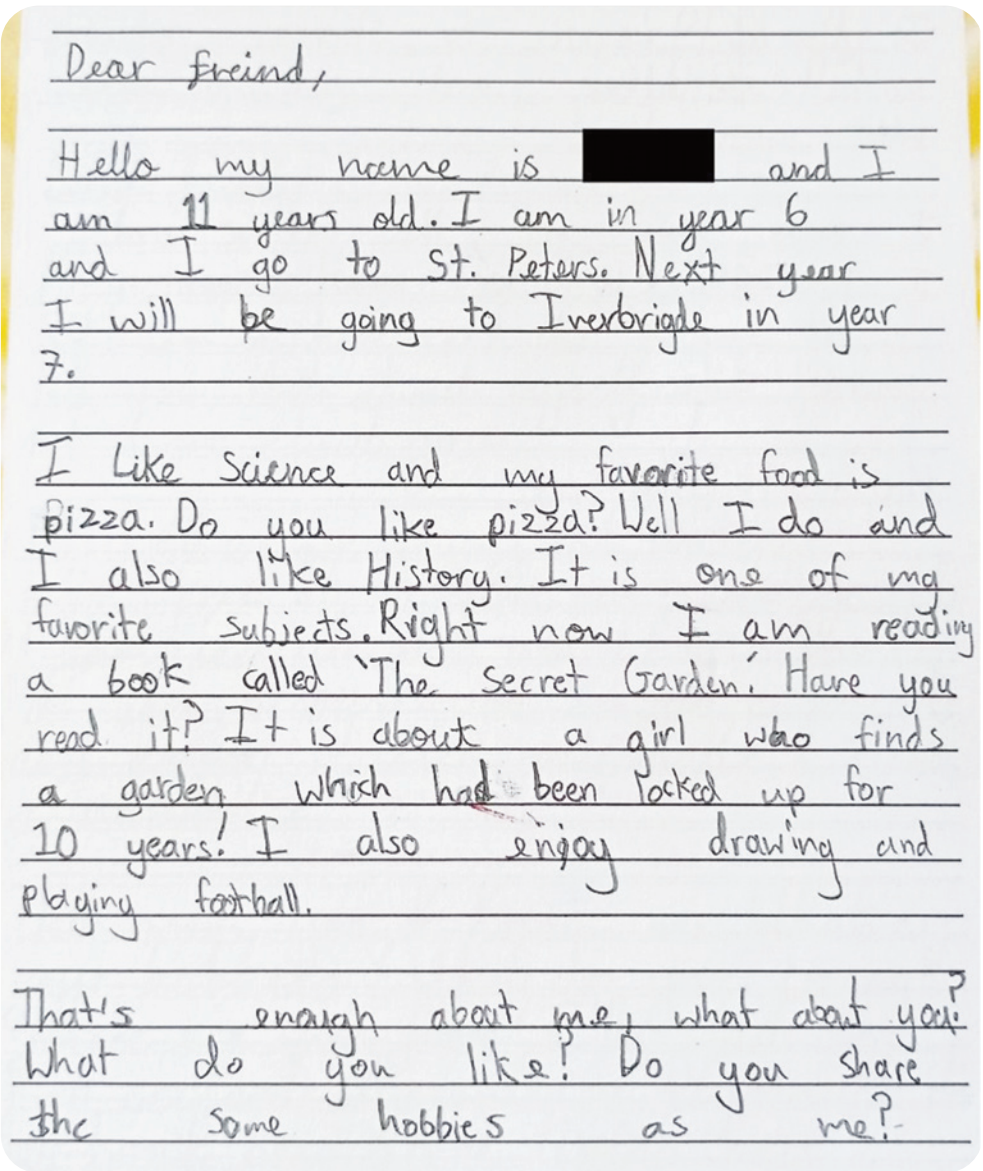 Dear freind,
Hello my name is and I
am 11 years old. I am in year 6
and I go to St. Peters. Next year
I will be going to Iverbrigde in year
7.
I Like Science and my favorite food is
pizza. Do you like pizza? Well I do and
I also like History. It is one of my
favorite subjects. Right now I am reading
a book called 'The Secret Garden.' Have you
read it? It is about a girl who finds
a garden which had been locked up for
10 years! I also engoy drawing and
playing football.
That's enough about me, what about you?
What do you like? Do you share
the some hobbies as me?